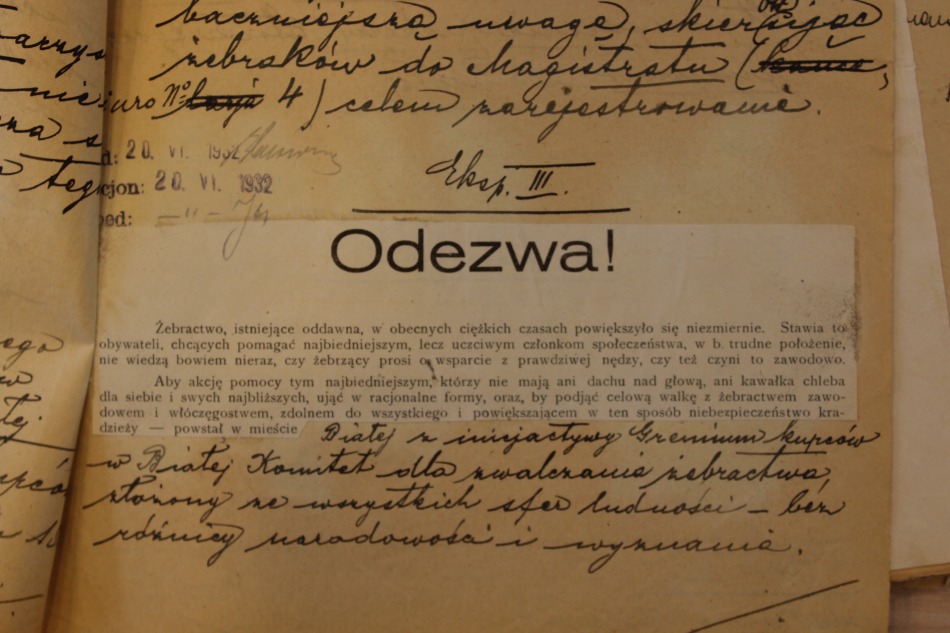 baczniejszą uwagę, skierowując
żebraków do Magistratu (
iuro No 4) celem zarejestrowania.
arzys
nie
za s
teg
d: 20. VI. 1932
cjon: 20. VI. 1932
ped: — " —
Eksp. III.
Odezwa!
Żebractwo, istniejące oddawna, w obecnych ciężkich czasach powiększyło się niezmiernie. Stawia to
obywateli, chcących pomagać najbiedniejszym, lecz uczciwym członkom społeczeństwa, w b. trudne położenie,
nie wiedzą bowiem nieraz, czy żebrzący prosi o wsparcie z prawdziwej nędzy, czy też czyni to zawodowo.
Aby akcję pomocy tym najbiedniejszym, którzy nie mają ani dachu nad głową, ani kawałka chleba
dla siebie i swych najbliższych, ująć w racjonalne formy, oraz, by podjąć celową walkę z żebractwem zawo-
dowem i włóczęgostwem, zdolnem do wszystkiego i powiększającem w ten sposób niebezpieczeństwo kra-
dzieży — powstał w mieście Białej z inicjatywy Gremium kupców
w Białej Komitet dla zwalczania żebractwa,
złożony ze wszystkich sfer ludności – bez
różnicy narodowości i wyznania.